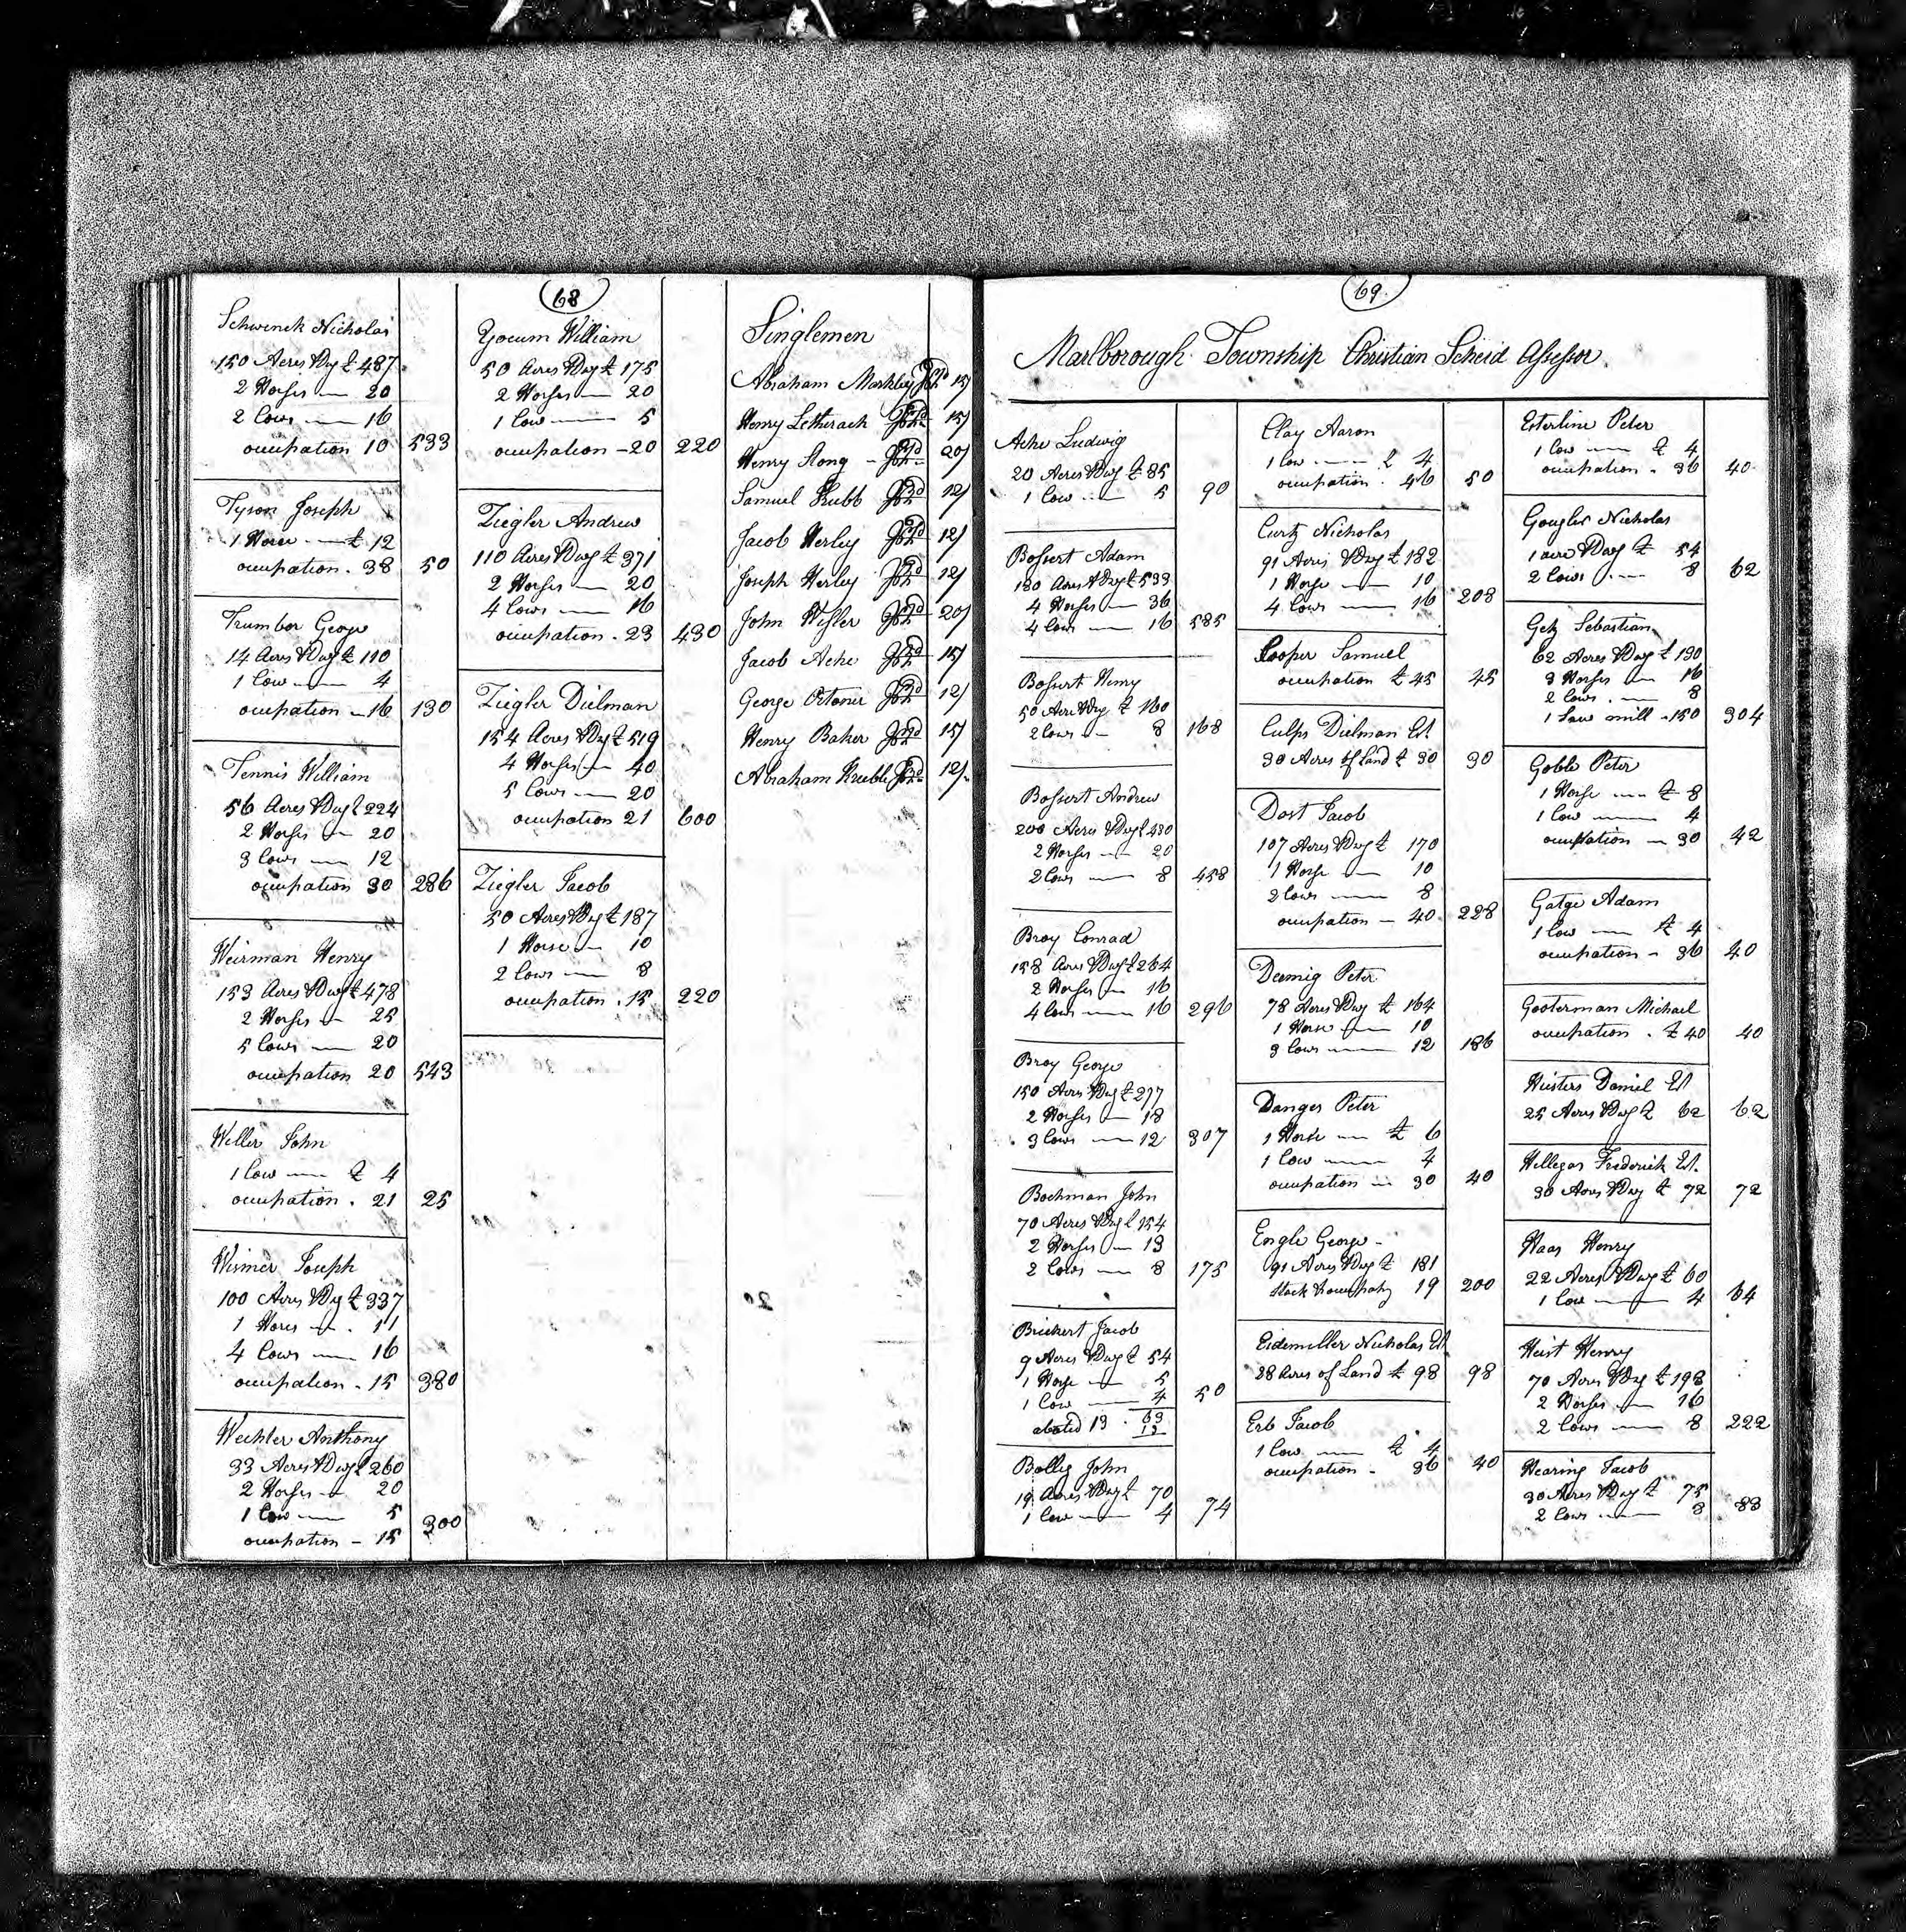 68
Schwenck Nicholas
150 Acres & Dwg £ 487
2 Horses — 20
2 Cows — 16
occupation 10 533
Tyson Joseph
1 Horse — £ 12
occupation . 38 50
Trumbor George
14 Acres & Dwg £ 110
1 Cow — 4
occupation — 16 130
Tennis William
56 Acres & Dwg £ 224
2 Horses — 20
3 Cows — 12
occupation 30 286
Weirman Henry
153 Acres & Dwg £ 478
2 Horses — 25
5 Cows — 20
occupation 20 543
Weller John
1 Cow — £ 4
occupation . 21 25
Wismer Joseph
100 Acres & Dwg £ 337
1 Hors — . 11
4 Cows — 16
occupation . 15 380
Wechter Anthony
33 Acres & Dwg £ 260
2 Horses — 20
1 Cow — 5
occupation — 15 300
Yocum William
50 Acres & Dwg £ 175
2 Horses — 20
1 Cow — 5
occupation — 20 220
Ziegler Andrew
110 Acres & Dwg £ 371
2 Horses — 20
4 Cows — 16
occupation . 23 430
Ziegler Dielman
154 Acres & Dwg £ 519
4 Horses — 40
5 Cows — 20
occupation 21 600
Ziegler Jacob
50 Acres & Dwg £ 187
1 Horse — 10
2 Cows — 8
occupation . 15 220
Singlemen
Abraham Markley 15/
Henry Letherach 15/
Henry Stong 20/
Samuel Stubb 12/
Jacob Herley 12/
Joseph Herley 12/
John Wisler 20/
Jacob Ache 15/
George Ortoner 12/
Henry Baker 15/
Abraham Kreeble 12/
69
Marlborough Township Christian Scheid Assessor.
Ache Ludwig
20 Acres & Dwg £ 85
1 Cow — 5 90
Bossert Adam
180 Acres & Dwg £ 533
4 Horses — 36
4 Cows — 16 585
Bossert Henry
50 Acre & Dwg £ 160
2 Cows — 8 168
Bossert Andrew
200 Acres & Dwg £ 430
2 Horses — 20
2 Cows — 8 458
Broy Conrad
158 Acres & Dwg £ 264
2 Horses — 16
4 Cows — 16 296
Broy George
150 Acres & Dwg £ 277
2 Horses — 18
3 Cows — 12 307
Bochman John
70 Acres & Dwg £ 154
2 Horses — 13
2 Cows — 8 175
Brickert Jacob
9 Acres & Dwg £ 54
1 Horse — 5
1 Cow — 4 50
abated 13 . 63
13
Bolley John
19 Acres & Dwg £ 70
1 Cow — 4 74
Clay Aaron
1 Cow — £ 4
occupation . 46 50
Curtz Nicholas
91 Acres & Dwg £ 182
1 Horse — 10
4 Cows — 16 208
Cooper Samuel
occupation £ 45 45
Culps Dielman Est
30 Acres of Land £ 30 30
Dast Jacob
107 Acres & Dwg £ 170
1 Horse — 10
2 Cows — 8
occupation — 40 228
Dermig Peter
78 Acres & Dwg £ 164
1 Horse — 10
3 Cows — 12 186
Danges Peter
1 Horse — £ 6
1 Cow — 4
occupation — 30 40
Engle George —
91 Acres & Dwg £ 181
Stock & 19 200
Eidemiller Nicholas Est
28 Acres of Land £ 98 98
Erb Jacob
1 Cow — £ 4
occupation — 36 40
Esterline Peter
1 Cow — £ 4
occupation . 36 40
Gougler Nicholas
1 acre & Dwg £ 54
2 Cows — 8 62
Getz Sebastian
62 Acres & Dwg £ 130
3 Horses — 16
2 Cows — 8
1 Saw mill — 150 304
Goble Peter
1 Horse — £ 8
1 Cow — 4
occupation — 30 42
Gatge Adam
1 Cow — £ 4
occupation — 36 40
Gosterman Michael
occupation . £ 40 40
Heisters Daniel Est
25 Acres & Dwg £ 62 62
Hillegas Frederick Est.
30 Acres & Dwg £ 72 72
Haas Henry
22 Acres & Dwg £ 60
1 Cow — 4 64
Heist Henry
70 Acres & Dwg £ 198
2 Horses — 16
2 Cows — 8 222
Hearing Jacob
30 Acres & Dwg £ 75
2 Cows — 8 83